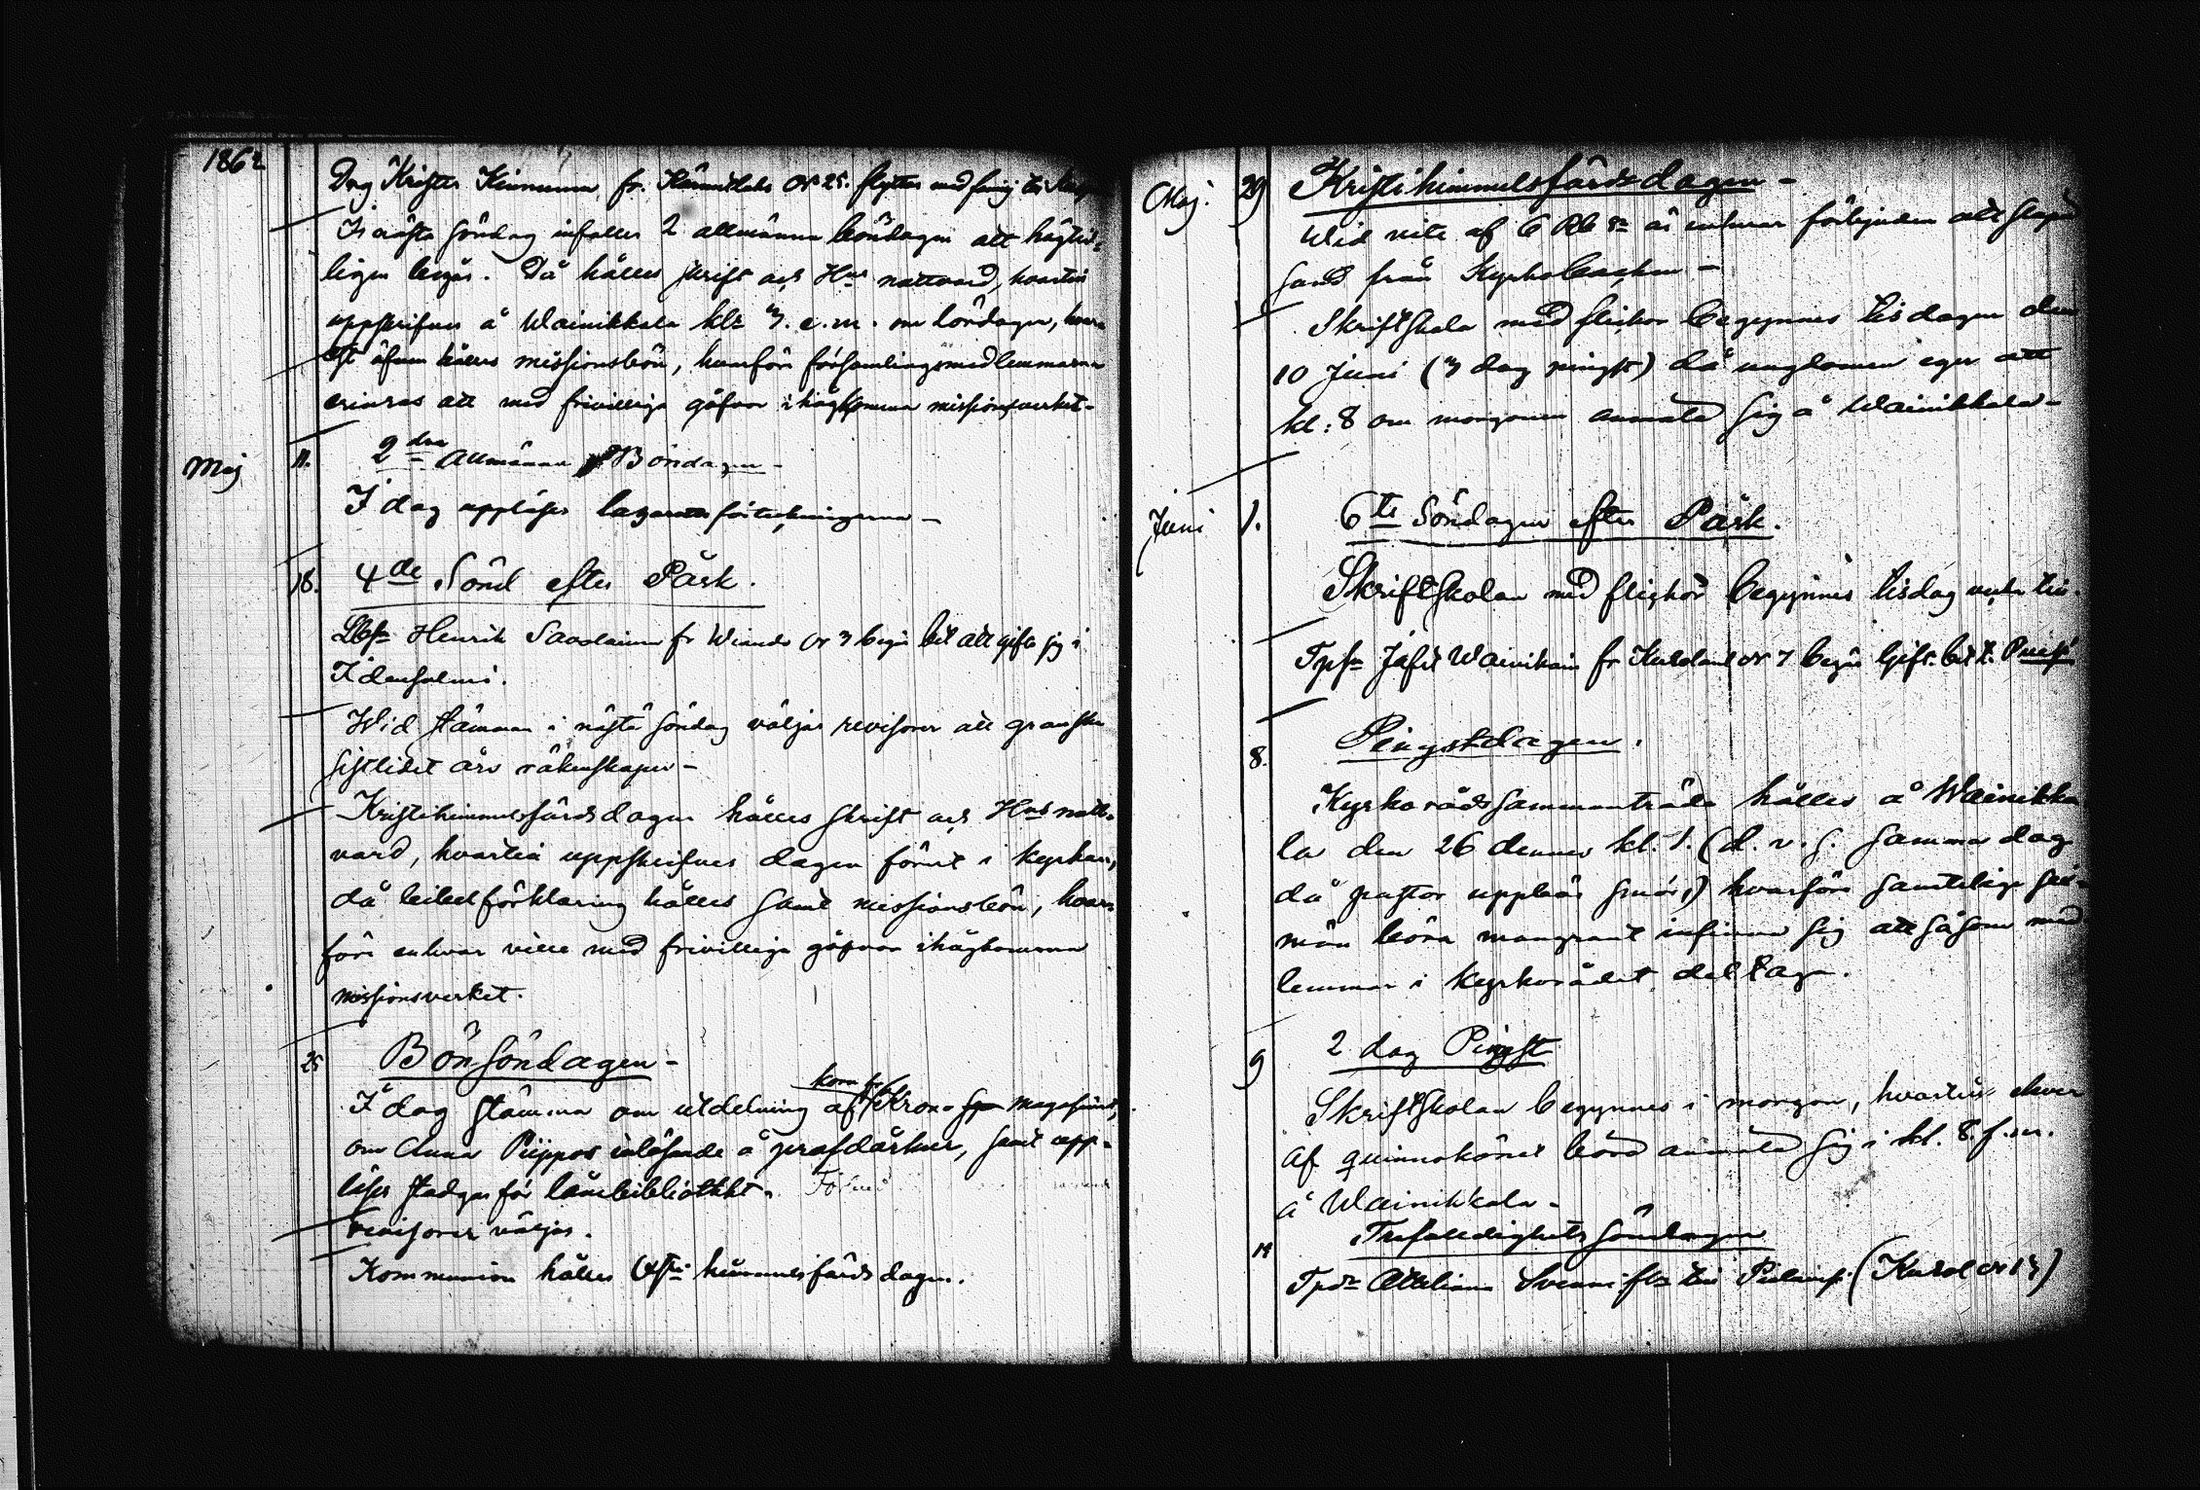 1862
Drg Krister Kinnunen fr. № 25. flyttar med familj till
I nästa söndag infaller 2 allmänna böndagen att högtid-
ligen begås. Då hålles skrift och Hns nattvard, hvartill
uppskrifves å Wainikkala kl: 3. e.m. om lördagen, hvar-
est äfven hålles missionsbön, hvarföre församlingsmedlemmarna
erinras att med frivilliga gåfvor ihågkomma missionsverket-
Maj 11. 2dra Allmänna Böndagen-
I dag uppläses förteckningarna -
18. 4de Sönd efter Påsk.
Henrik Savolainen fr № 3 begär bet att gifta sig i
Idensalmi.
Wid stämman i nästa söndag väljas revisorer att granska
sistlidet års räkenskaper -
Kristihimmelsfärdsdagen hålles skrift och Hns natt-
vard, hvartill uppskrifves dagen förut i kyrkan,
då bibelförklaring hålles samt missionsbön, hvar-
före enhvar ville med frivilliga gåfvor ihågkomma
missionsverket.
25 Bönsöndagen -
korn fr
I dag stämma om utdelning af Krono Magasinet,
om Anna Piippos inlösande å samt upp-
läses stadgar för lånebibliothek.
revisorer väljas.
Kommunion hålles Kristi himmelsfärdsdagen.
Maj. 29 Kristihimmelsfärdsdagen -
Wid vite af 6 Rb Sr är enhvar förbjuden att
sand från Kyrkobacken -
Skriftskola med flickor begynnes tisdagen den
10 Juni (3 dag pingst) då ungdomen eger att
kl: 8 om morgonen anmäla sig å Wainikkala-
Juni 1. 6te Söndagen efter Påsk.
Skriftskolan med flickor begynnes tisdag
Josef Wainikain fr № 7 begär Gift. bet t.
8. Pingstdagen.
Kyrkorådssammanträde hålles å Wainikka
la den 26 dennes kl. 1. (d. v. s. samma dag
då pastor uppbär smör,) hvarföre samtelige sex-
män böra mangrant infinna sig att såsom med
lemmar i kyrkorådet deltaga.
9 2 dag Pingst
Skriftskolan begynnes i morgon, hvartill enhver
af qvinnokönet böra anmäla sig i kl. 8. f.m.
å Wainikkala -
Trefaldighets söndagen